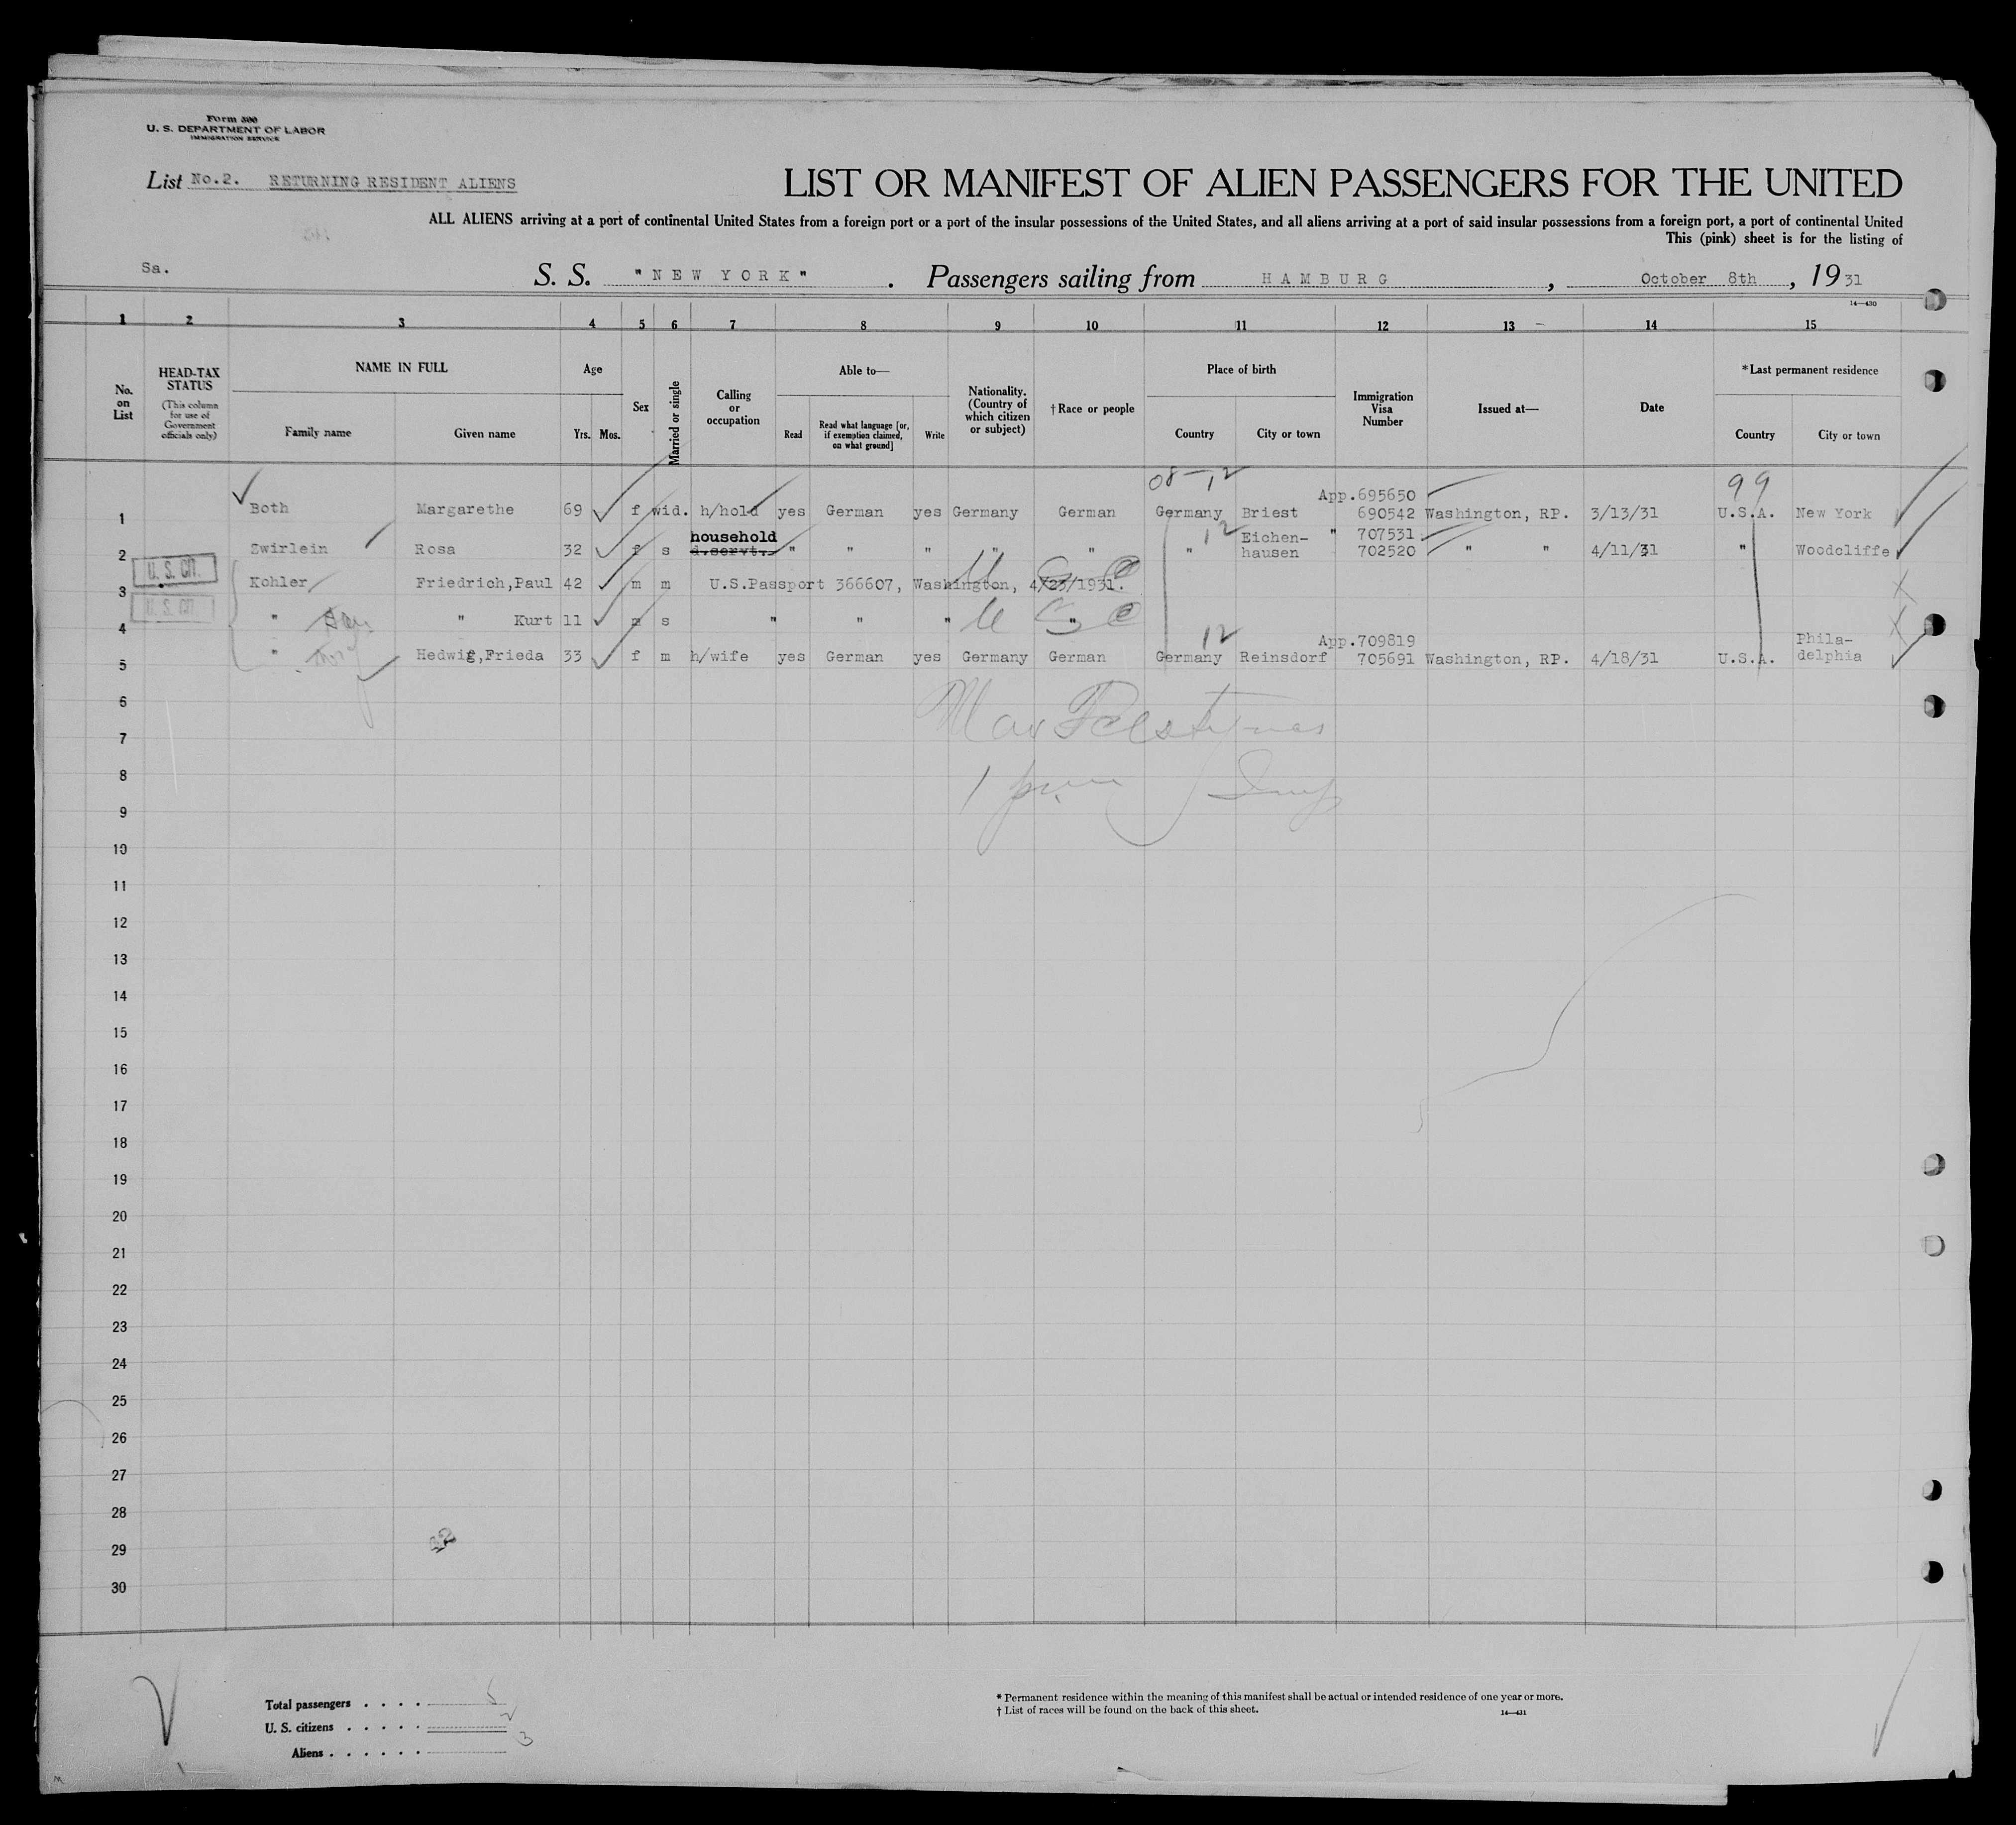 Form 500
U. S. DEPARTMENT OF LABOR
IMMIGRATION SERVICE
List No.2. RETURNING RESIDENT ALIENS
LIST OR MANIFEST OF ALIEN PASSENGERS FOR THE UNITED
ALL ALIENS arriving at a port of continental United States from a foreign port or a port of the insular possessions of the United States, and all aliens arriving at a port of said insular possessions from a foreign port, a port of continental United
This (pink) sheet is for the listing of
Sa.
S. S. "NEW YORK" . Passengers sailing from HAMBURG , October 8th , 1931
14—430
1 2 3 4 5 6 7 8 9 10 11 12 13 14 15
No. on List
HEAD-TAX STATUS
(This column for use of Government officials only)
NAME IN FULL
Family name
Given name
Age
Yrs. Mos.
Sex
Married or single
Calling or occupation
Able to—
Read
Read what language [or, if exemption claimed, on what ground]
Write
Nationality. (Country of which citizen or subject)
†Race or people
Place of birth
Country
City or town
Immigration Visa Number
Issued at—
Date
*Last permanent residence
Country
City or town
08-12
99
App.695650
1 Both Margarethe 69 f wid. h/hold yes German yes Germany German Germany Briest 690542 Washington, RP. 3/13/31 U.S.A. New York
household 12 Eichen- " 707531
2 Zwirlein Rosa 32 f s d.servt. " " " " " " hausen 702520 " " 4/11/31 " Woodcliffe
U.S. CIT.
3 Kohler Friedrich,Paul 42 m m U.S.Passport 366607, Washington, 4/23/1931.
U S C
U.S. CIT.
4 " " Kurt 11 m s " " " "
U S C
12 App.709819 Phila-
5 " Hedwig,Frieda 33 f m h/wife yes German yes Germany German Germany Reinsdorf 705691 Washington, RP. 4/18/31 U.S.A. delphia
6
7
8
9
10
11
12
13
14
15
16
17
18
19
20
21
22
23
24
25
26
27
28
29
30
Total passengers . . . . 5
U. S. citizens . . . . . 2
Aliens . . . . . . 3
* Permanent residence within the meaning of this manifest shall be actual or intended residence of one year or more.
† List of races will be found on the back of this sheet.
14—431